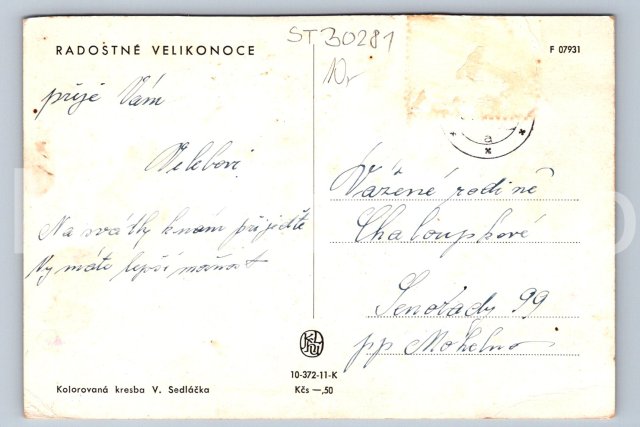 RADOSTNÉ VELIKONOCE
ST30281
F 07931
10,-
přejí Vám
Velebovi
Na svátky k nám přijeďte
Vy máte lepší možnost
a
Vážené rodině
Chaloupkové
Senorady 99
pp Mohelno
10-372-11-K
Kčs —,50
Kolorovaná kresba V. Sedláčka